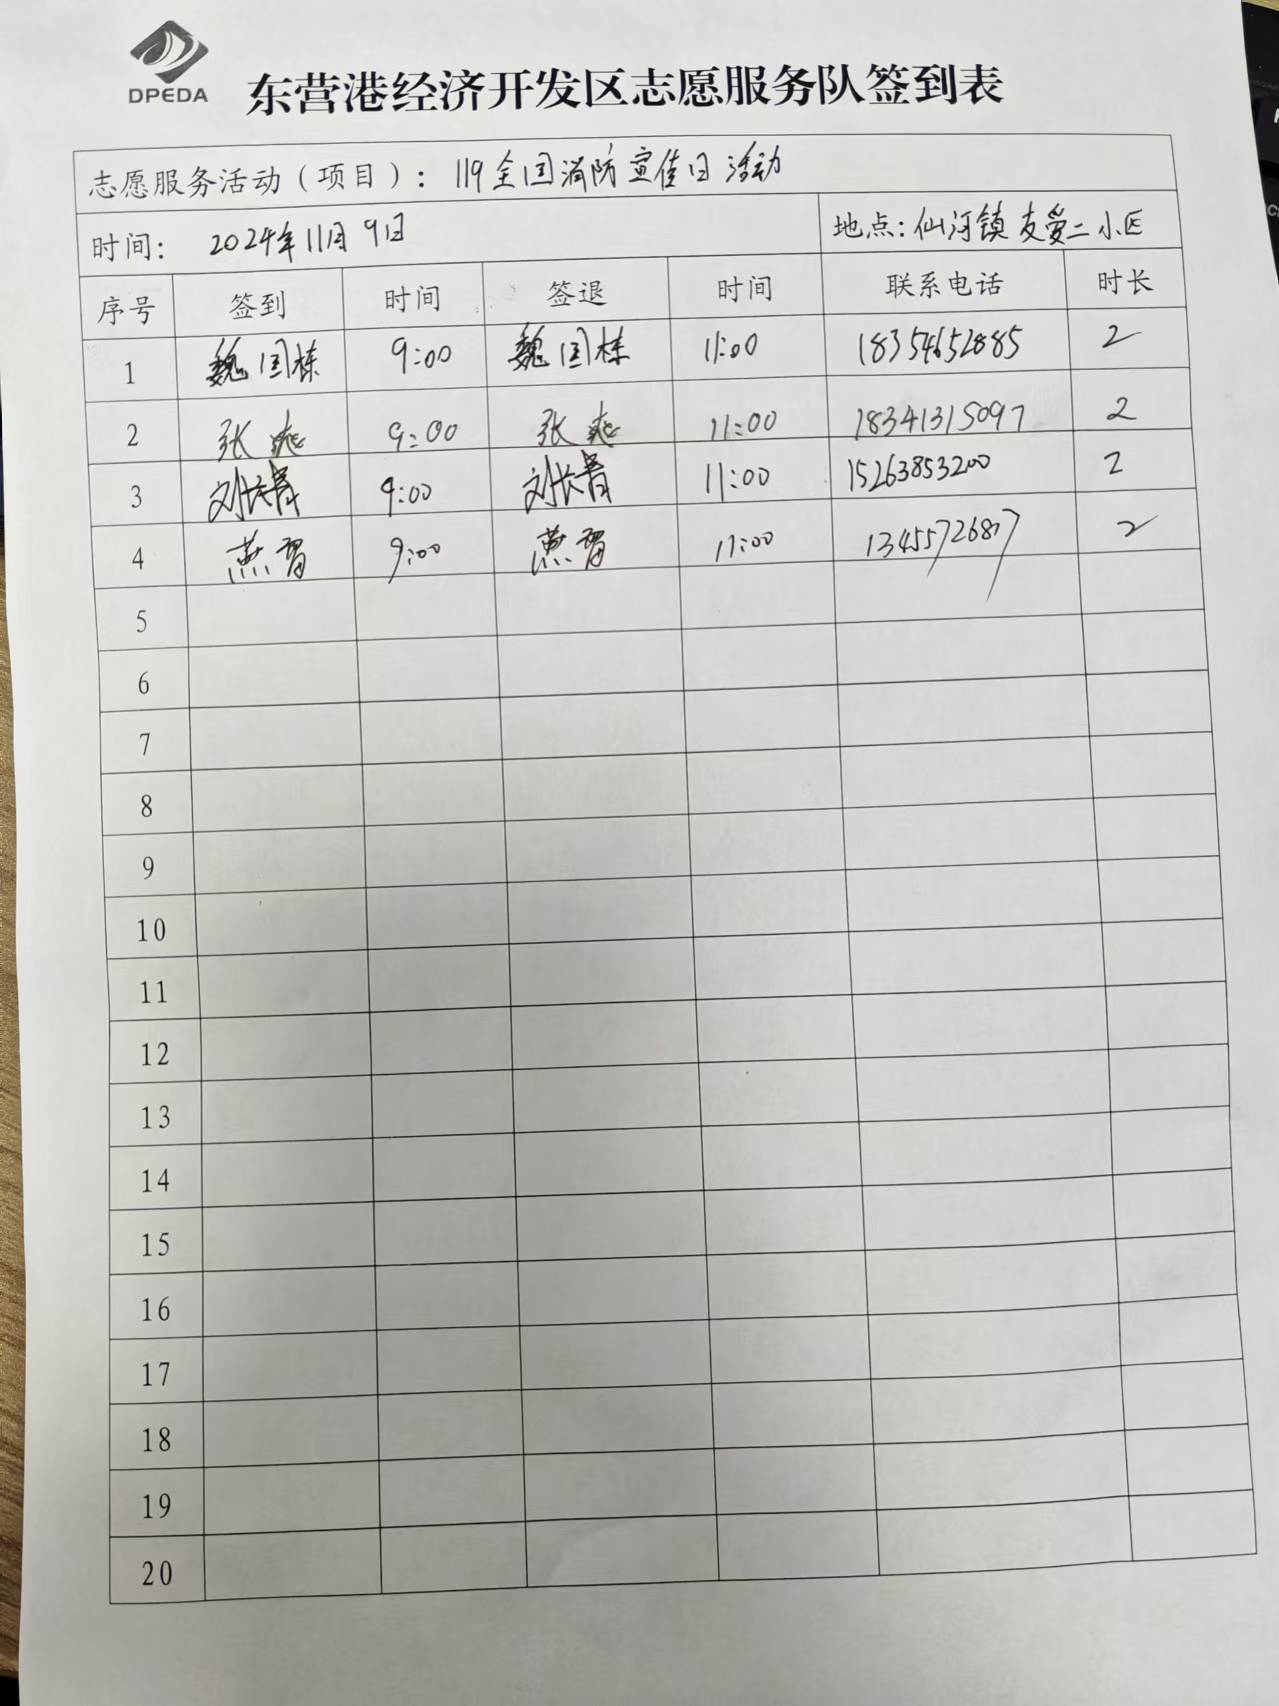 DPEDA
东营港经济开发区志愿服务队签到表
志愿服务活动（项目）：119全国消防宣传日活动
时间： 2024年11月9日 地点：仙河镇友爱二小区
序号 签到 时间 签退 时间 联系电话 时长
1 魏国栋 9:00 魏国栋 11:00 18354652885 2
2 张爽 9:00 张爽 11:00 18341315097 2
3 刘长青 9:00 刘长青 11:00 15263853200 2
4 燕智 9:00 燕智 11:00 13455726817 2
5
6
7
8
9
10
11
12
13
14
15
16
17
18
19
20